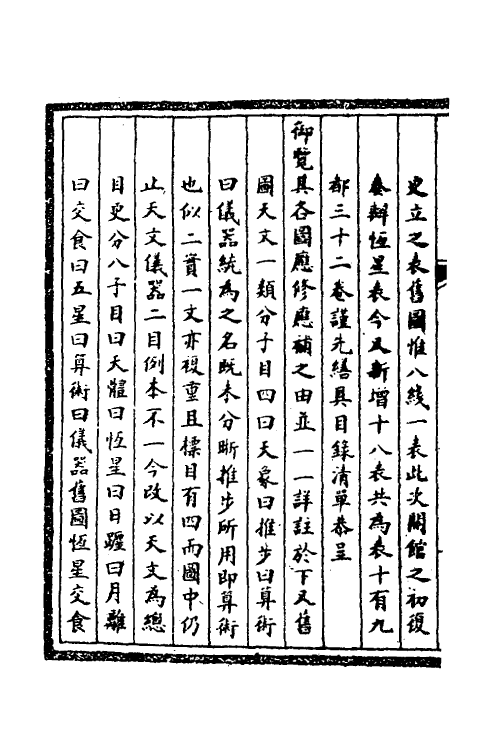 史立之表舊圖惟八綫一表此次開館之初復
奏辦恆星表今又新增十八表共為表十有九
都三十二卷謹先繕具目錄清單恭呈
御覽其各圖應修應補之由並一一詳註於下又舊
圖天文一類分子目四曰天象曰推步曰算術
曰儀器統為之名既未分晰推步所用即算術
也似二實一文亦複重且標目有四而圖中仍
止天文儀器二目例本不一今改以天文為總
目更分八子目曰天體曰恆星曰日躔曰月離
曰交食曰五星曰算術曰儀器舊圖恆星交食